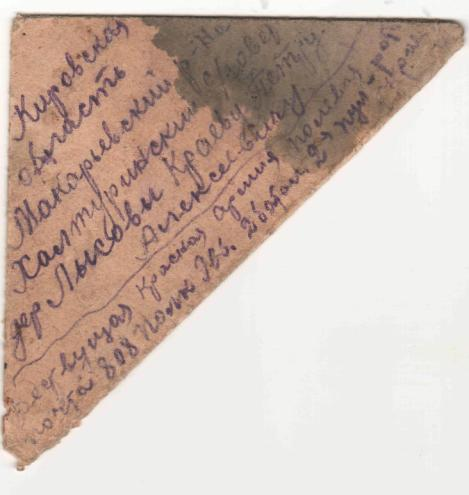 Кировская
область
Макарьевский р-на
Халтуринский с/совет
дер Лысовы Краеву Петру
Алексеевичу
Действующая Красная армия полевая
почта 808 полк 2 батал. 2я пул - рот